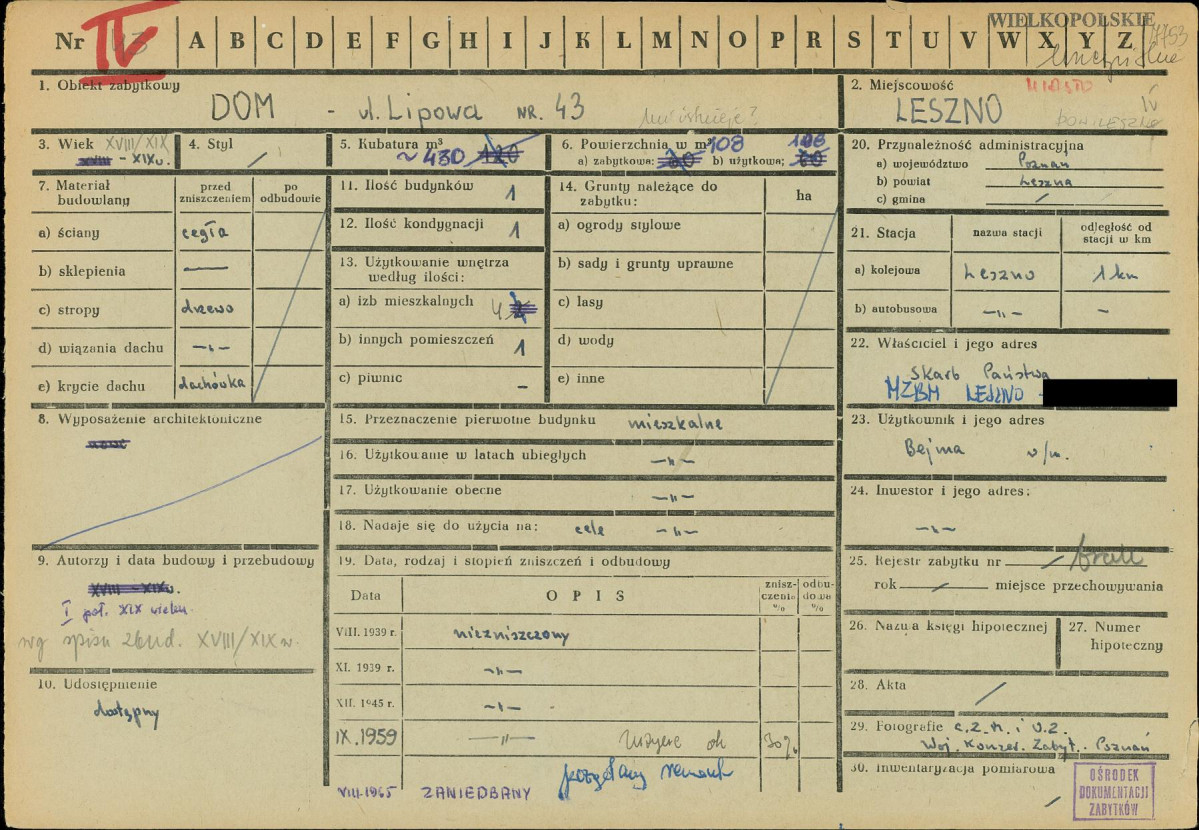 WIELKOPOLSKIE
Nr IV 43 A B C D E F G H I J K L M N O P R S T U V W X Y Z
1. Obiekt zabytkowy
DOM - ul. Lipowa NR. 43
2. Miejscowość
MIASTO
LESZNO
IV
POW. LESZNO
3. Wiek XVIII/XIX
XVIII - XIX w.
4. Styl /
5. Kubatura m³
~ 430 120
6. Powierzchnia w m² 108 108
a) zabytkowa: b) użytkowa;
20. Przynależność administracyjna
a) województwo Poznań
b) powiat Leszno
c) gmina /
7. Materiał budowlany
przed zniszczeniem
po odbudowie
a) ściany cegła
b) sklepienia —
c) stropy drzewo
d) wiązania dachu -"-
e) krycie dachu dachówka
11. Ilość budynków 1
12. Ilość kondygnacji 1
13. Użytkowanie wnętrza według ilości:
a) izb mieszkalnych 4
b) innych pomieszczeń 1
c) piwnic -
14. Grunty należące do zabytku:
ha
a) ogrody stylowe
b) sady i grunty uprawne
c) lasy
d) wody
e) inne
21. Stacja
nazwa stacji
odległość od stacji w km
a) kolejowa Leszno 1 km
b) autobusowa -"- -
22. Właściciel i jego adres
Skarb Państwa
MZBM LESZNO -
8. Wyposażenie architektoniczne
15. Przeznaczenie pierwotne budynku mieszkalne
16. Użytkowanie w latach ubiegłych -"-
17. Użytkowanie obecne -"-
18. Nadaje się do użycia na: cele -"-
23. Użytkownik i jego adres
Bejma w/m.
24. Inwestor i jego adres:
-"-
9. Autorzy i data budowy i przebudowy
XVIII - XIX w.
I poł. XIX wieku
wg spisu XVIII/XIX w.
10. Udostępnienie
dostępny
19. Data, rodzaj i stopień zniszczeń i odbudowy
Data
OPIS
znisz-czenia %
odbu-dowa %
VIII. 1939 r. niezniszczony
XI. 1939 r. -"-
XII. 1945 r. -"-
IX. 1959 -"- zużycie ok 30%
VIII. 1965 ZANIEDBANY
pożądany remont
25. Rejestr zabytku nr / brak
rok / miejsce przechowywania
26. Nazwa księgi hipotecznej
27. Numer hipoteczny
28. Akta /
29. Fotografie C.Z.M. i O.Z.
Woj. Konser. Zabyt. Poznań
30. Inwentaryzacja pomiarowa
/
OŚRODEK
DOKUMENTACJI
ZABYTKÓW